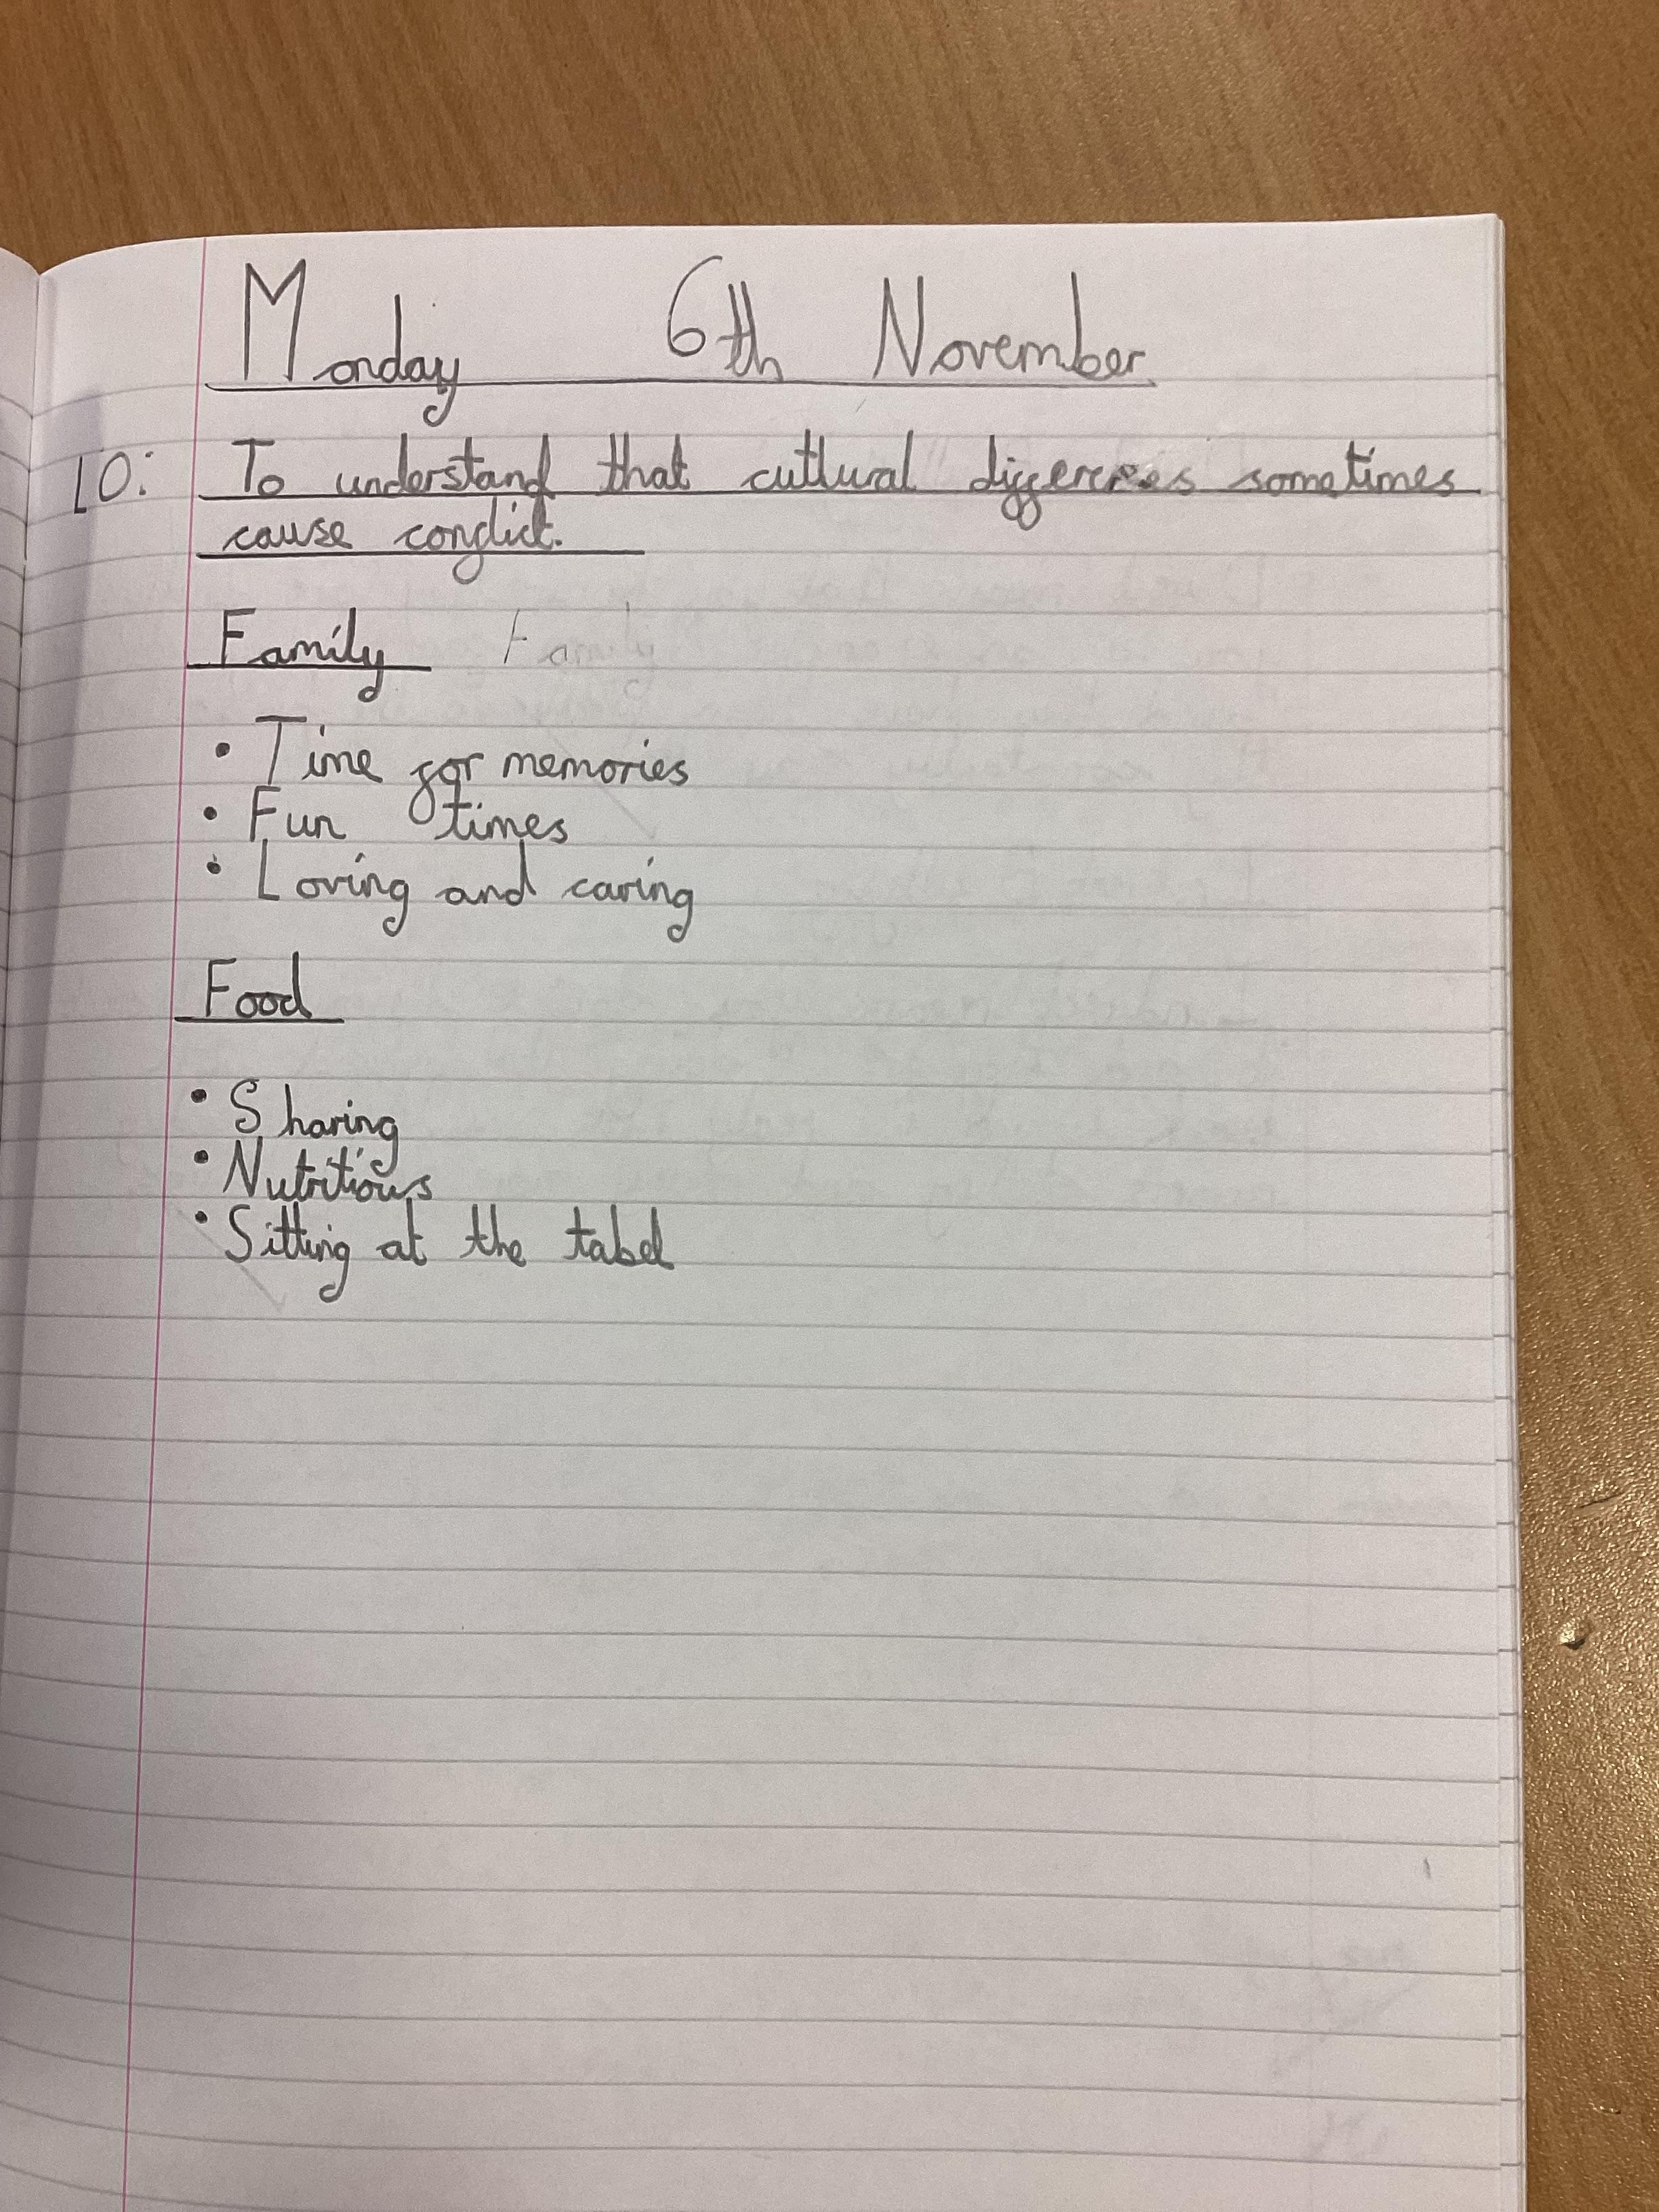 Monday 6th November
LO: To understand that cutlural differences sometimes
cause conflict.
Family Family
• Time for memories
• Fun times
• Loving and caring
Food
• Sharing
• Nutritious
• Sitting at the tabel